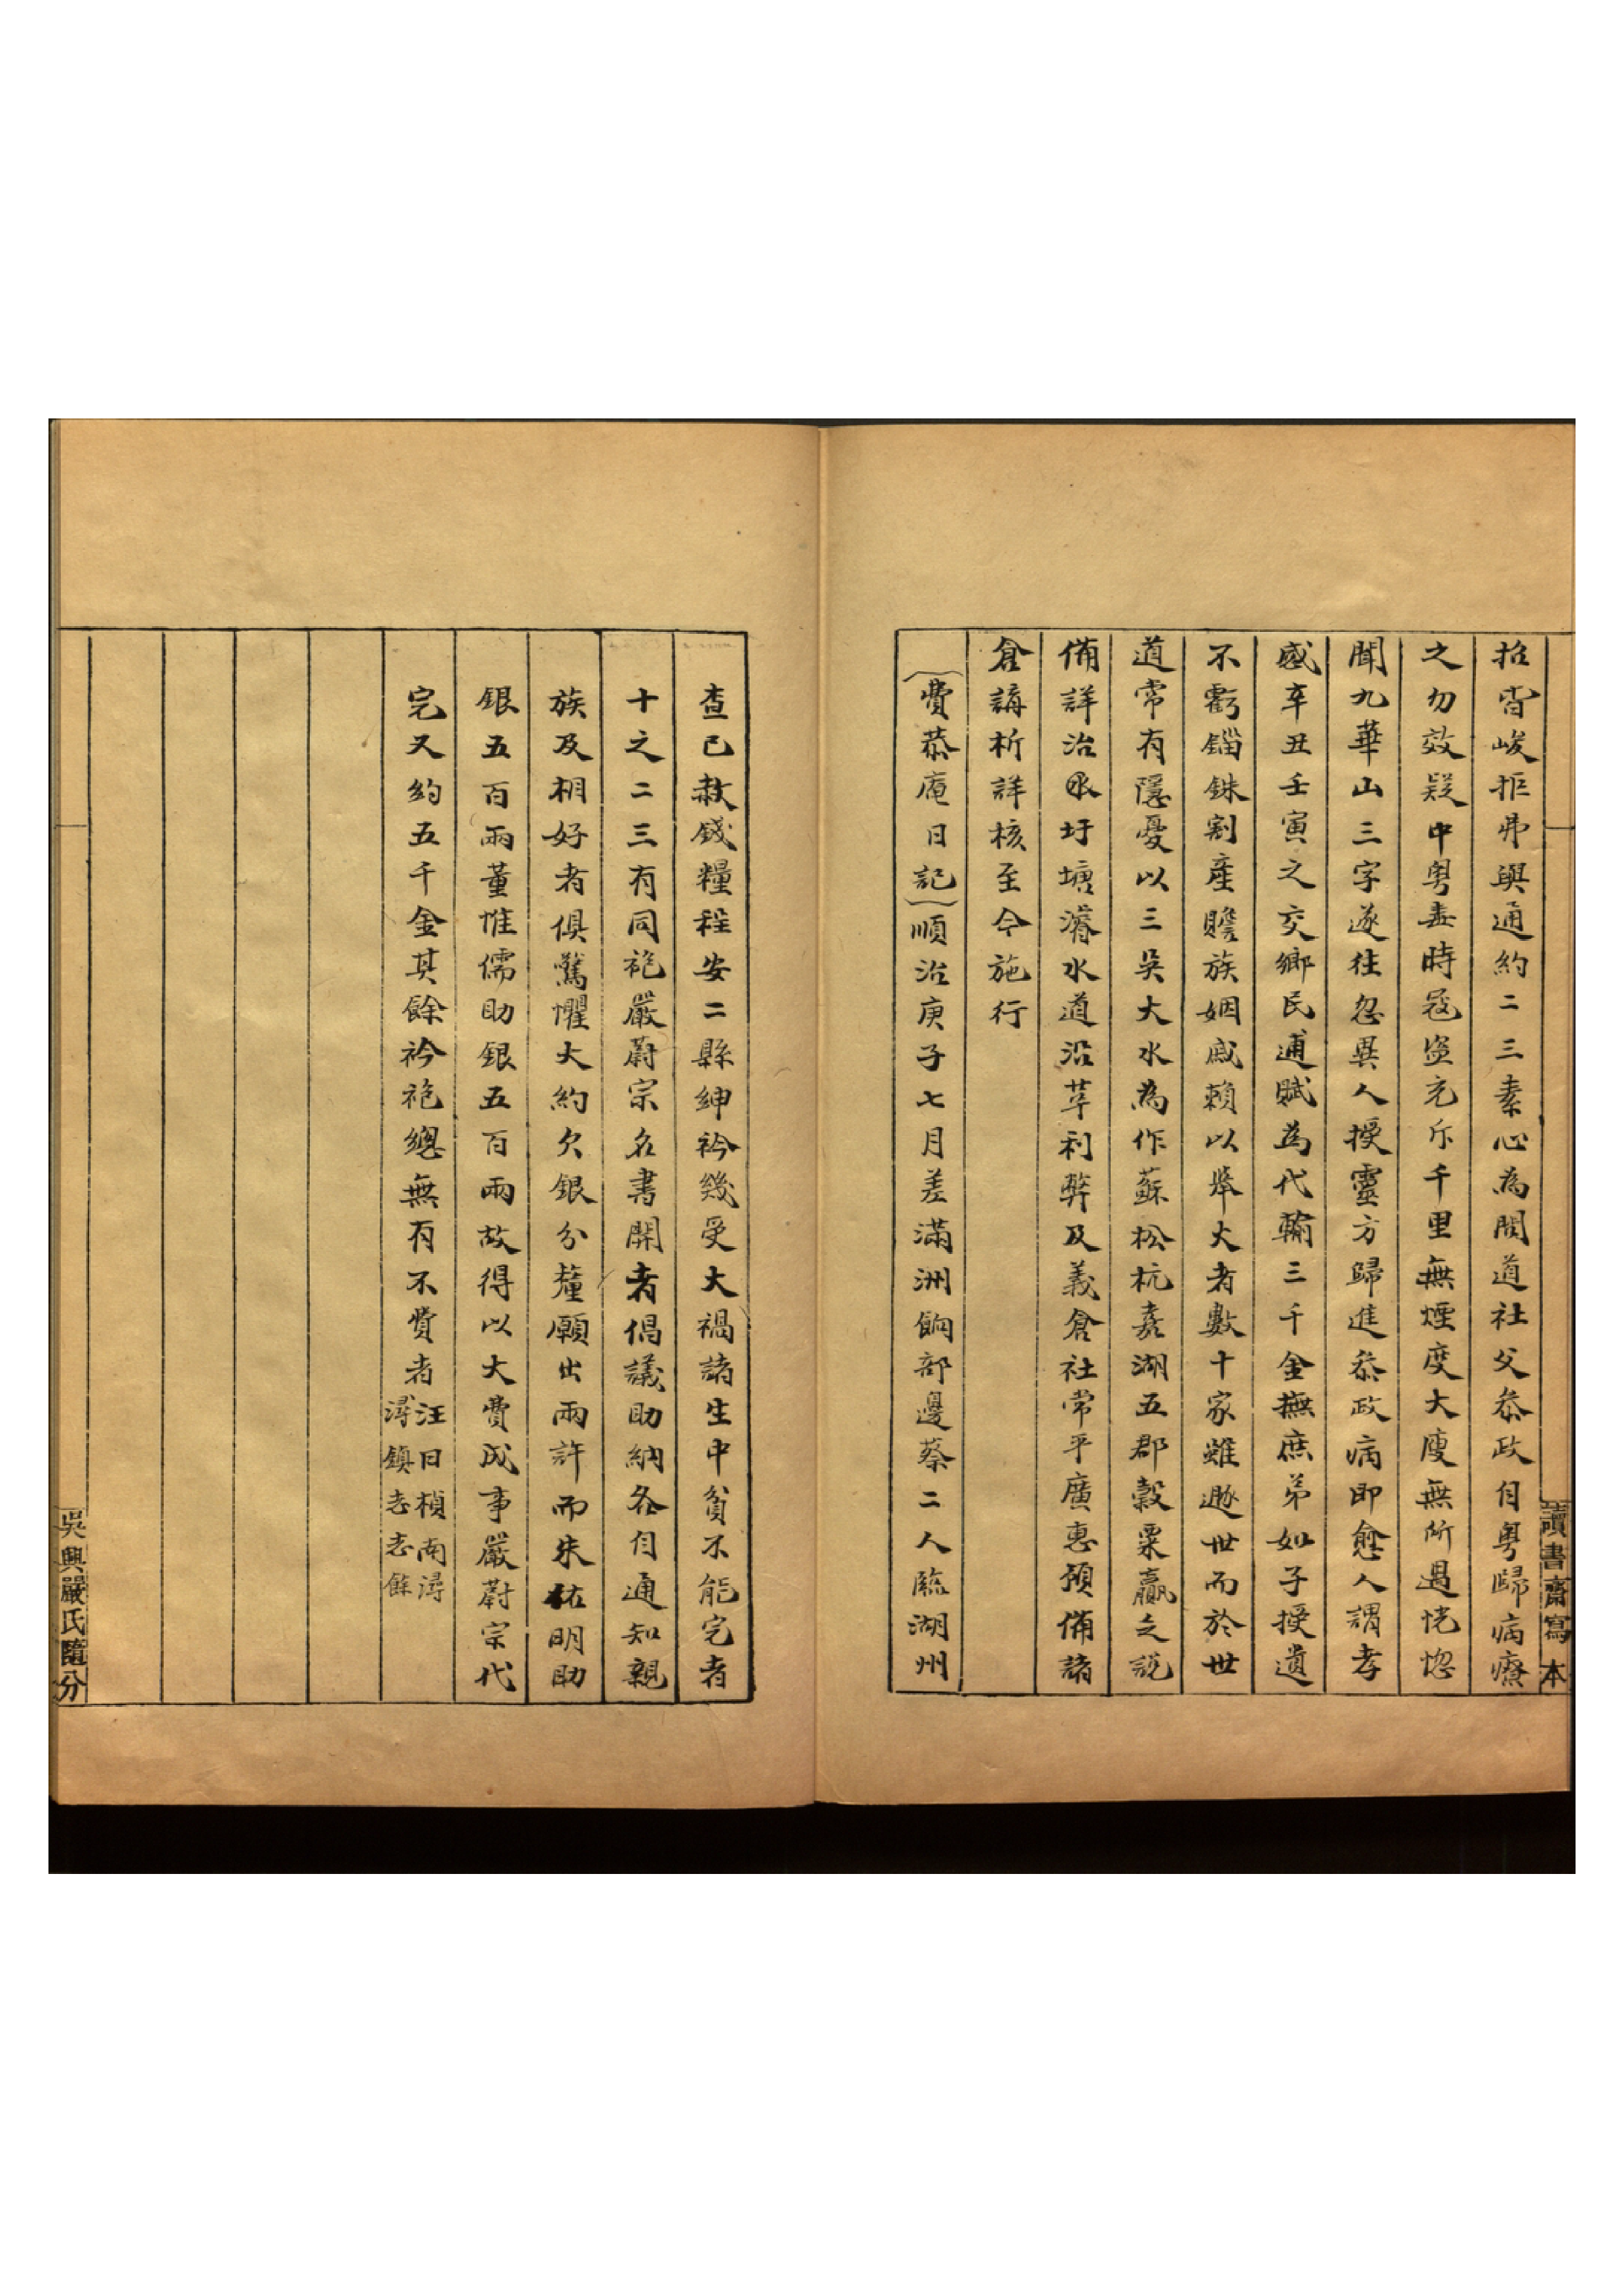 招皆峻拒弗與通約二三素心為閒道社父叅政自粤歸病療
之勿效疑中粤毒時寇盜充斥千里無煙度大廋無所過恍惚
聞九華山三字遂往忽異人授靈方歸進叅政病即愈人謂孝
感辛丑壬寅之交鄉民逋賦為代輸三千金撫庶弟如子授遺
不虧錙銖割產贍族姻戚賴以舉火者數十家雖遯世而於世
道常有隱憂以三吳大水為作蘇松杭嘉湖五郡穀粟贏之說
備詳治圩塘濬水道沿革利弊及義倉社常平廣惠預備諸
倉講析詳核至今施行
(費恭庵日記)順治庚子七月差滿洲餉部邊蔡二人臨湖州
查已赦錢糧程安二縣紳衿幾受大禍諸生中貧不能完者
十之二三有同袍嚴蔚宗名書開者倡議助納各自通知親
族及相好者俱驚懼大約欠銀分釐願出兩許而朱佑明助
銀五百兩董惟儒助銀五百兩故得以大費成事嚴蔚宗代
完又約五千金其餘衿袍總無有不費者
汪曰楨南潯
潯鎮志志餘
讀書齋寫本
吳興嚴氏隨分